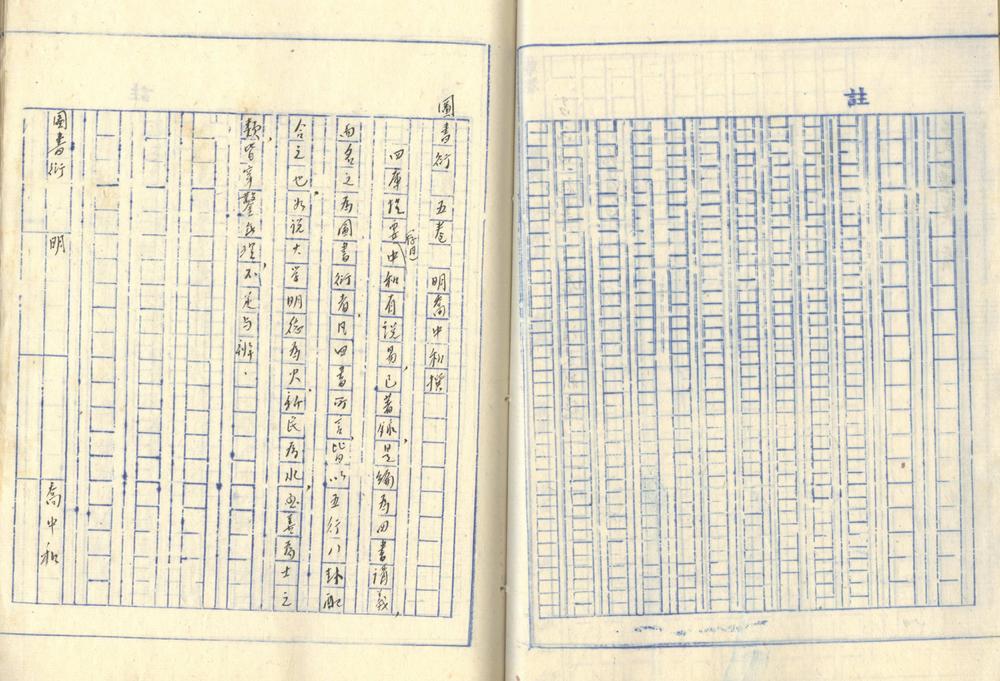 註
圖書衍　五卷　明喬中和撰
四庫提要（存目）中和有說易，已著錄是編為四書講義，
而名之為圖書衍者凡四書所言，皆以五行八卦配
合之也。如說大学明德為火，新民為水，至善為土之
類，皆穿鑿無理，不足与辨．
圖書衍　明　喬中和